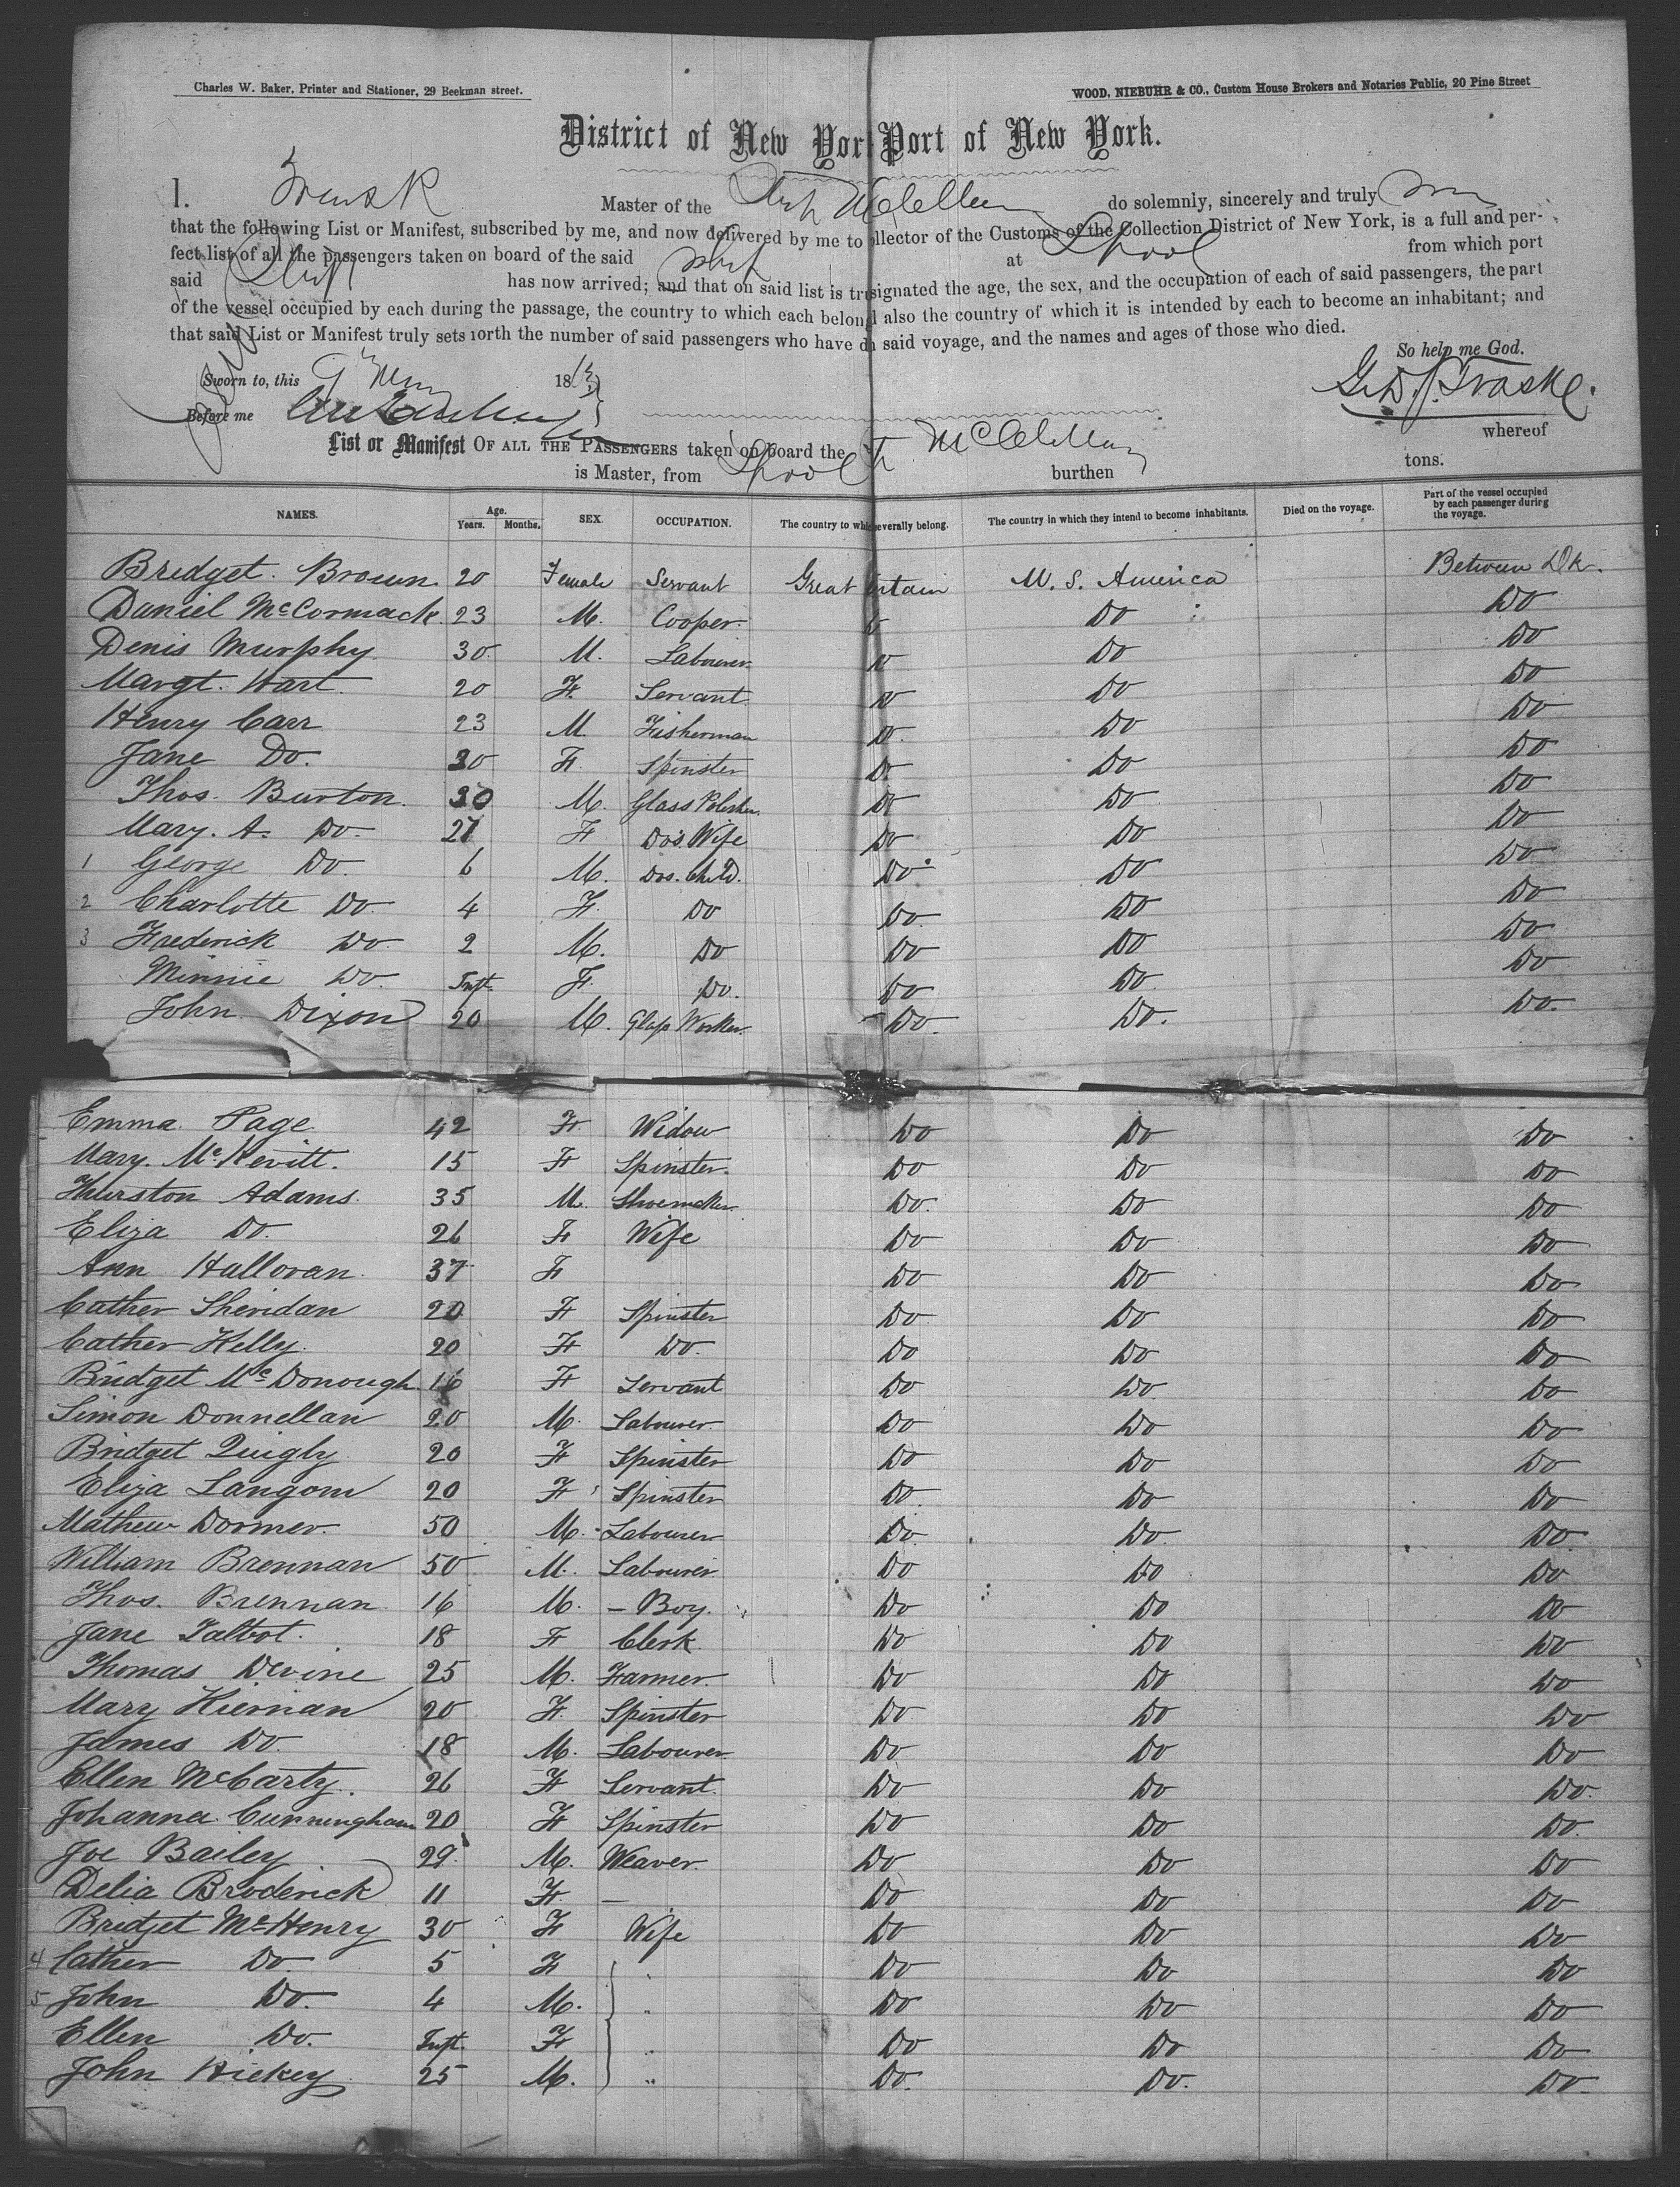 Charles W. Baker, Printer and Stationer, 29 Beekman street.
WOOD, NIEBUHR & CO., Custom House Brokers and Notaries Public, 20 Pine Street
District of New Yor Port of New York.
I. Master of the do solemnly, sincerely and truly
that the following List or Manifest, subscribed by me, and now delivered by me to ollector of the Customs of the Collection District of New York, is a full and per-
fect list of all the passengers taken on board of the said at Lpool from which port
said Ship has now arrived; and that on said list is tr signated the age, the sex, and the occupation of each of said passengers, the part
of the vessel occupied by each during the passage, the country to which each belong d also the country of which it is intended by each to become an inhabitant; and
that said List or Manifest truly sets forth the number of said passengers who have d n said voyage, and the names and ages of those who died.
So help me God.
Sworn to, this 9 18
Before me
Geo. J. Trask
List or Manifest OF ALL THE PASSENGERS taken on board the McClellan whereof
is Master, from Lpool burthen tons.
NAMES. Age. Years. Months. SEX. OCCUPATION. The country to which severally belong. The country in which they intend to become inhabitants. Died on the voyage. Part of the vessel occupied by each passenger during the voyage.
Bridget Brown 20 Female Servant Great Britain U. S. America Between Dk.
Daniel McCormack 23 M. Cooper Do Do Do
Denis Murphy 30 M. Labourer Do Do Do
Margt. Hart 20 F. Servant Do Do Do
Henry Carr 23 M. Fisherman Do Do Do
Jane Do. 20 F. Spinster Do Do Do
Thos. Burton 30 M. Glass Polisher Do Do Do
Mary. A. Do. 27 F. Do's Wife Do Do Do
1 George Do. 6 M. Dos. Child. Do Do Do
2 Charlotte Do. 4 F. Do Do Do Do
3 Frederick Do. 2 M. Do Do Do Do
Minnie Do. Inft. F. Do. Do Do Do
John Dixon 20 M. Glass Worker Do. Do. Do.
Emma Page 42 F. Widow Do Do Do
Mary McKevitt. 15 F. Spinster. Do Do Do
Thurston Adams. 35 M. Shoemaker. Do. Do Do
Eliza Do. 26 F. Wife Do Do Do
Ann Halloran. 37 F Do Do Do
Cather Sheridan 20 F. Spinster Do Do Do
Cather Kelly. 20 F. Do. Do Do Do
Bridget McDonough 16 F. Servant Do Do Do
Simon Donnellan 20 M. Labourer Do Do Do
Bridget Quigly 20 F. Spinster Do Do Do
Eliza Langom 20 F. Spinster Do Do Do
Mathew Dormer. 50 M. Labourer Do. Do. Do.
William Brennan 50 M. Labourer Do Do Do
Thos. Brennan 16 M. - Boy. Do Do Do
Jane Talbot. 18 F. Clerk. Do Do Do
Thomas Devine 25 M. Farmer. Do Do Do
Mary Kiernan 20 F. Spinster Do Do Do
James Do. 18 M. Labourer. Do Do Do
Ellen McCarty. 26 F. Servant. Do Do Do.
Johanna Cunningham 20 F. Spinster Do Do Do.
Joe Bailey 29. M. Weaver. Do Do Do
Delia Broderick 11 F. — Do Do Do
Bridget McHenry 30 F. Wife Do Do Do
4 Cather Do. 5 F. " Do Do Do
5 John Do. 4 M. " Do Do Do
Ellen Do. Inft. F. " Do Do Do
John Hickey 25 M. " Do. Do. Do.